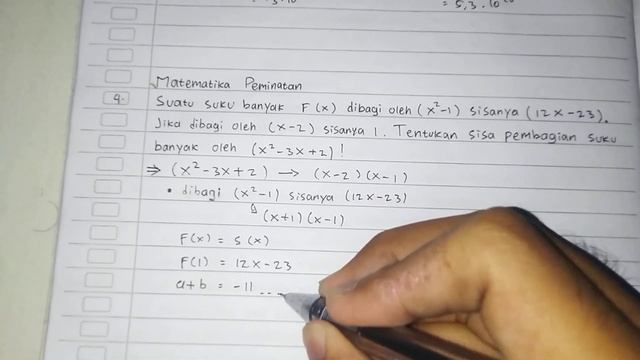 = 5,3 . 10
Matematika Peminatan
9. Suatu suku banyak F(x) dibagi oleh (x²-1) sisanya (12x-23).
Jika dibagi oleh (x-2) sisanya 1. Tentukan sisa pembagian suku
banyak oleh (x²-3x+2)!
⇒ (x²-3x+2) → (x-2)(x-1)
• dibagi (x²-1) sisanya (12x-23)
(x+1)(x-1)
F(x) = S(x)
F(1) = 12x-23
a+b = -11 ...